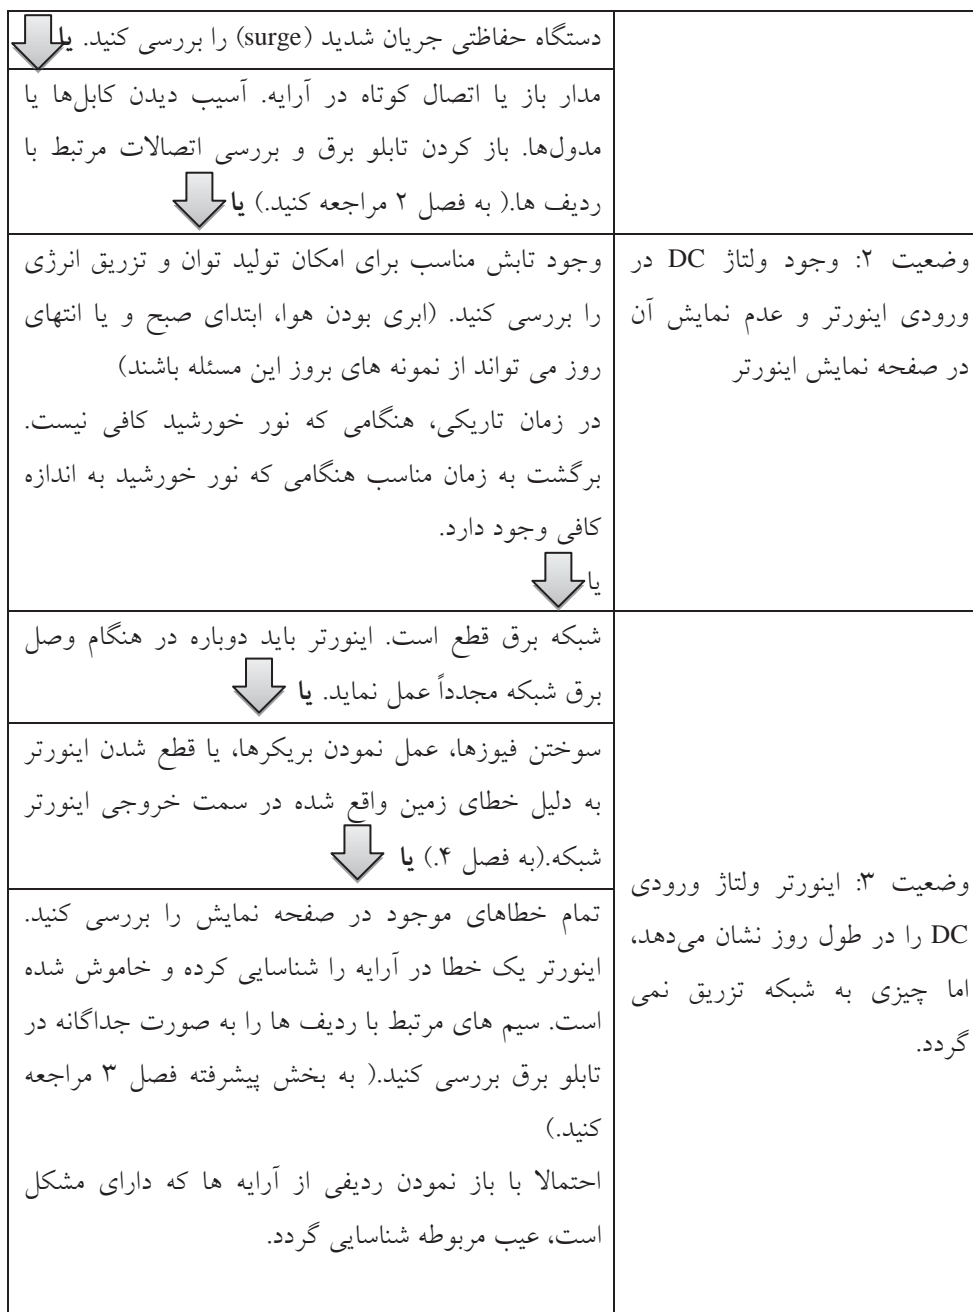 دستگاه حفاظتی جریان شدید (surge) را بررسی کنید. یا
مدار باز یا اتصال کوتاه در آرایه. آسیب دیدن کابل‌ها یا
مدول‌ها. باز کردن تابلو برق و بررسی اتصالات مرتبط با
ردیف ها.( به فصل ۲ مراجعه کنید.) یا
وضعیت ۲: وجود ولتاژ DC در
ورودی اینورتر و عدم نمایش آن
در صفحه نمایش اینورتر
وجود تابش مناسب برای امکان تولید توان و تزریق انرژی
را بررسی کنید. (ابری بودن هوا، ابتدای صبح و یا انتهای
روز می تواند از نمونه های بروز این مسئله باشند)
در زمان تاریکی، هنگامی که نور خورشید کافی نیست.
برگشت به زمان مناسب هنگامی که نور خورشید به اندازه
کافی وجود دارد.
یا
وضعیت ۳: اینورتر ولتاژ ورودی
DC را در طول روز نشان می‌دهد،
اما چیزی به شبکه تزریق نمی
گردد.
شبکه برق قطع است. اینورتر باید دوباره در هنگام وصل
برق شبکه مجدداً عمل نماید. یا
سوختن فیوزها، عمل نمودن بریکرها، یا قطع شدن اینورتر
به دلیل خطای زمین واقع شده در سمت خروجی اینورتر
شبکه.(به فصل ۴.) یا
تمام خطاهای موجود در صفحه نمایش را بررسی کنید.
اینورتر یک خطا در آرایه را شناسایی کرده و خاموش شده
است. سیم های مرتبط با ردیف ها را به صورت جداگانه در
تابلو برق بررسی کنید.( به بخش پیشرفته فصل ۳ مراجعه
کنید.)
احتمالا با باز نمودن ردیفی از آرایه ها که دارای مشکل
است، عیب مربوطه شناسایی گردد.